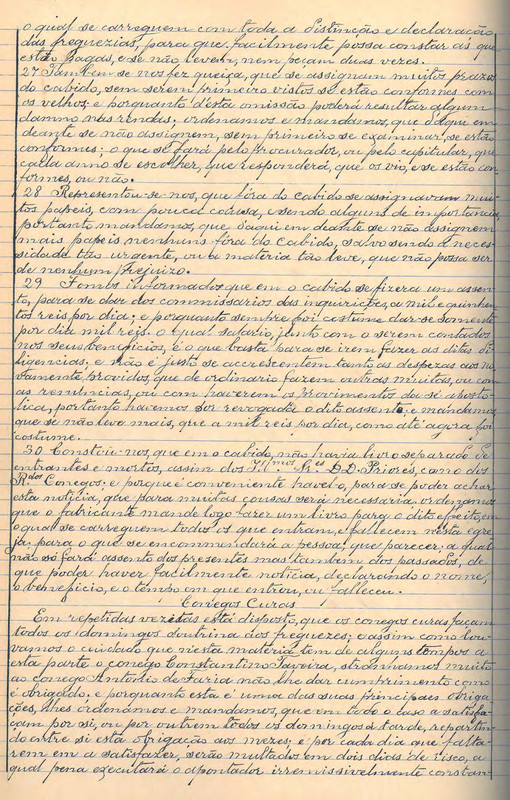 o qual se carreguem com toda a distincção e declaração
das freguezias, para que facilmente possa constar as que
estão pagas, e se não levem, nem peçam duas vezes.
27 Tambem se nos fez queixa, que se assignam muitos prazos
do cabido, sem serem primeiro vistos se estão conformes com
os velhos: e porquanto d'esta omissão poderá resultar algum
damno nas rendas; ordenamos e mandamos, que d'aqui em
deante se não assignem, sem primeiro se examinar, se estão
conformes: o que se fará pelo procurador, ou pelo capitular, que
cada anno se escolher, que responderá, que os vio, e se estão con
formes, ou não.
28 Representou-se-nos, que fóra do cabido se assignavam mui-
tos papeis, com pouca causa, e sendo alguns de importancia,
portanto mandamos, que d'aqui em deante se não assignem
mais papeis nenhuns fóra do Cabido, salvo sendo a neces-
sidade tão urgente, ou a materia tão leve, que não possa ser
de nenhum prejuizo.
29 Fomos informados que em o cabido se fizera um assen-
to, para se dar dos commissarios das inquirições, a mil e quinhen-
tos reis por dia; e porquanto sempre foi costume dar-se somente
por dia mil reis. O qual salario, junto com o serem contados
nos seus beneficios, é o que basta para se irem fazer as ditas di-
ligencias; e não é justo se accrescentem tanto as despezas aos no-
vamente providos, que de ordinario fazem outras muitas, ou com
as renuncias, ou com haverem os provimentos da sé aposto-
lica, portanto havemos por revogado o dito assento, e mandamos
que se não leve mais, que a mil reis por dia, como até agora foi
costume.
30 Constou-nos, que em o cabido, não havia livro separado de
entrantes e mortos, assim dos Ill.mos Sr.es D.D. Priores, como dos
R.dos Conegos; e porque é conveniente havel-o, para se poder achar
esta noticia, que para muitas cousas será necessaria: ordenamos
que o fabricante mande logo fazer um livro para o dito effeito, em
o qual se carreguem todos os que entram, e fallecem nesta egre-
ja, para o que se encommendará a pessoa, que parecer: a qual
não só fará assento dos presentes mas tambem dos passados, de
que poder haver facilmente noticia, declarando o nome,
o beneficio, e o tempo em que entrou, ou falleceu.
Conegos Curas
Em repetidas vezitas está disposto, que os conegos curas façam
todos os domingos doutrina aos freguezes; e assim como lou-
vamos o cuidado que n'esta materia tem de alguns tempos a
esta parte o conego Constantino Saveira, stranhamos muito
ao conego Antonio de Faria não lhe dar cumprimento como
é obrigado: e porquanto esta é uma das suas principaes obriga-
ções, lhes ordenamos e mandamos, que em todo o caso a satisfa-
çam por si, ou por outrem todos os domingos á tarde, repartin-
do entre si esta obrigação aos mezes; e por cada dia que falta-
rem em a satisfazer, serão multados em dois dias de risco, a
qual pena executará o apontador irremissivelmente constan-